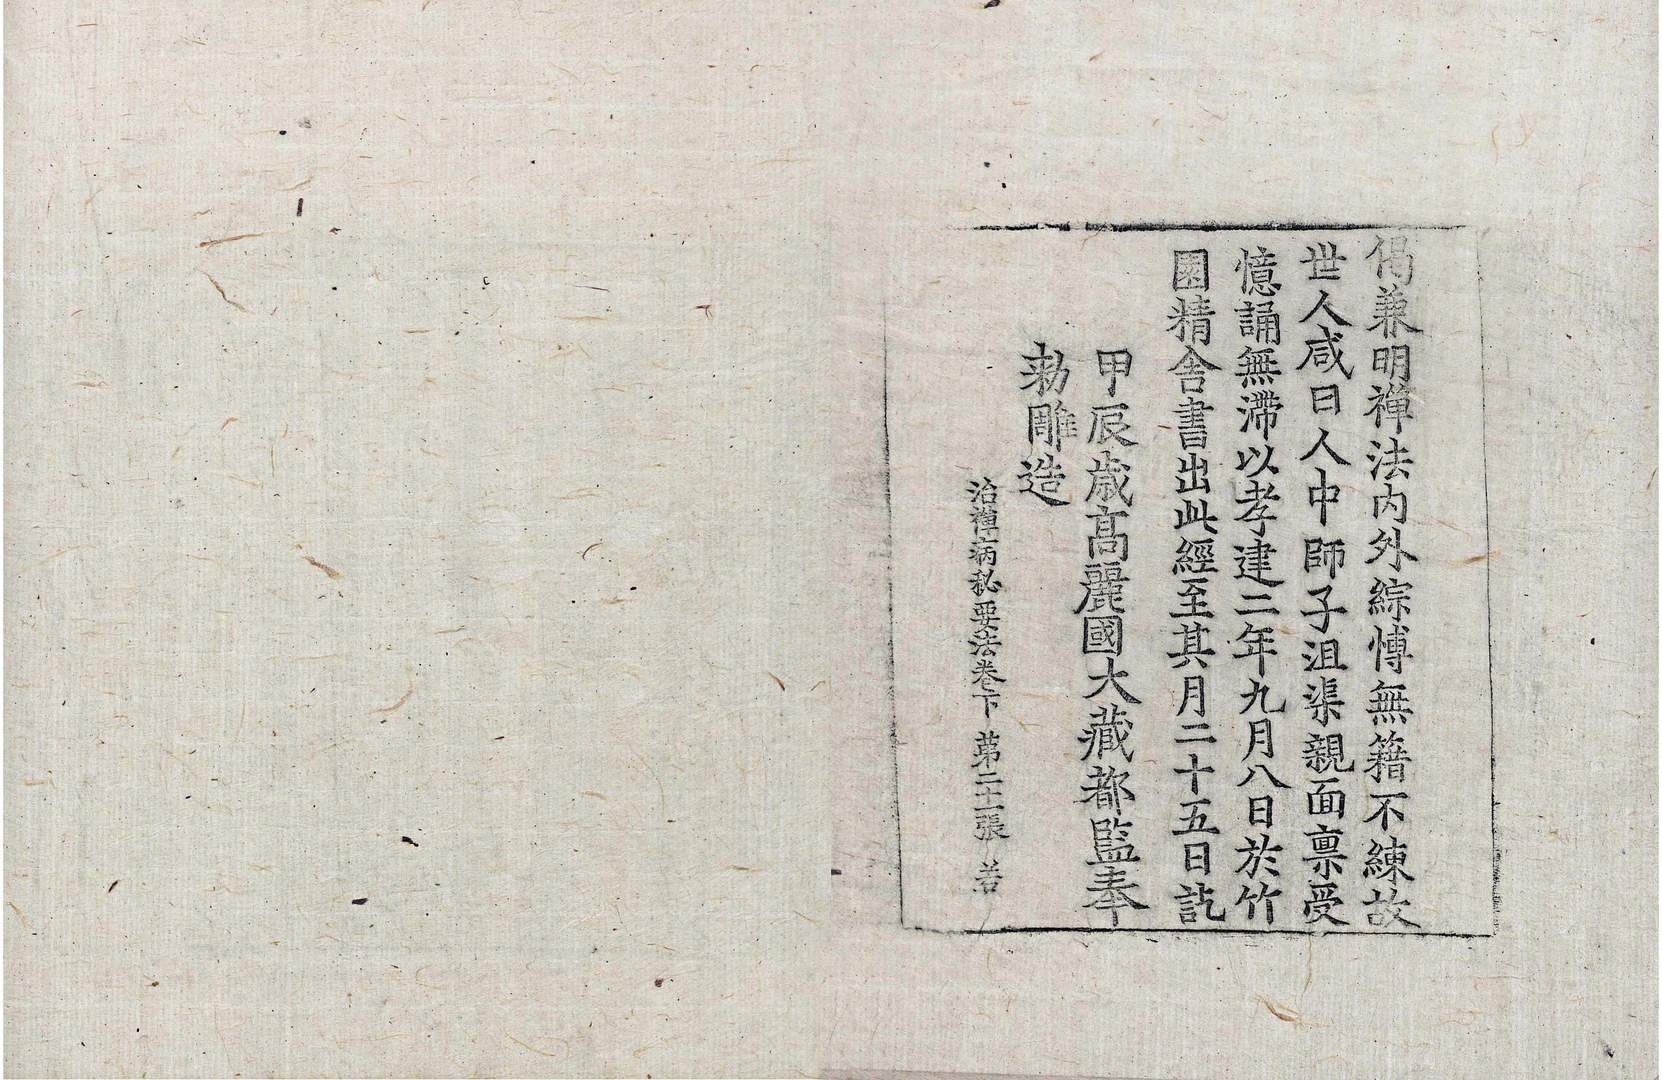 偈兼明禪法内外綜愽無籍不練故
世人咸曰人中師子沮渠親面禀受
憶誦無滯以孝建二年九月八日於竹
園精舎書出此經至其月二十五日訖
甲辰歳髙麗國大藏都監奉
勑雕造
治禪病秘要法卷下 苐二十一張 若